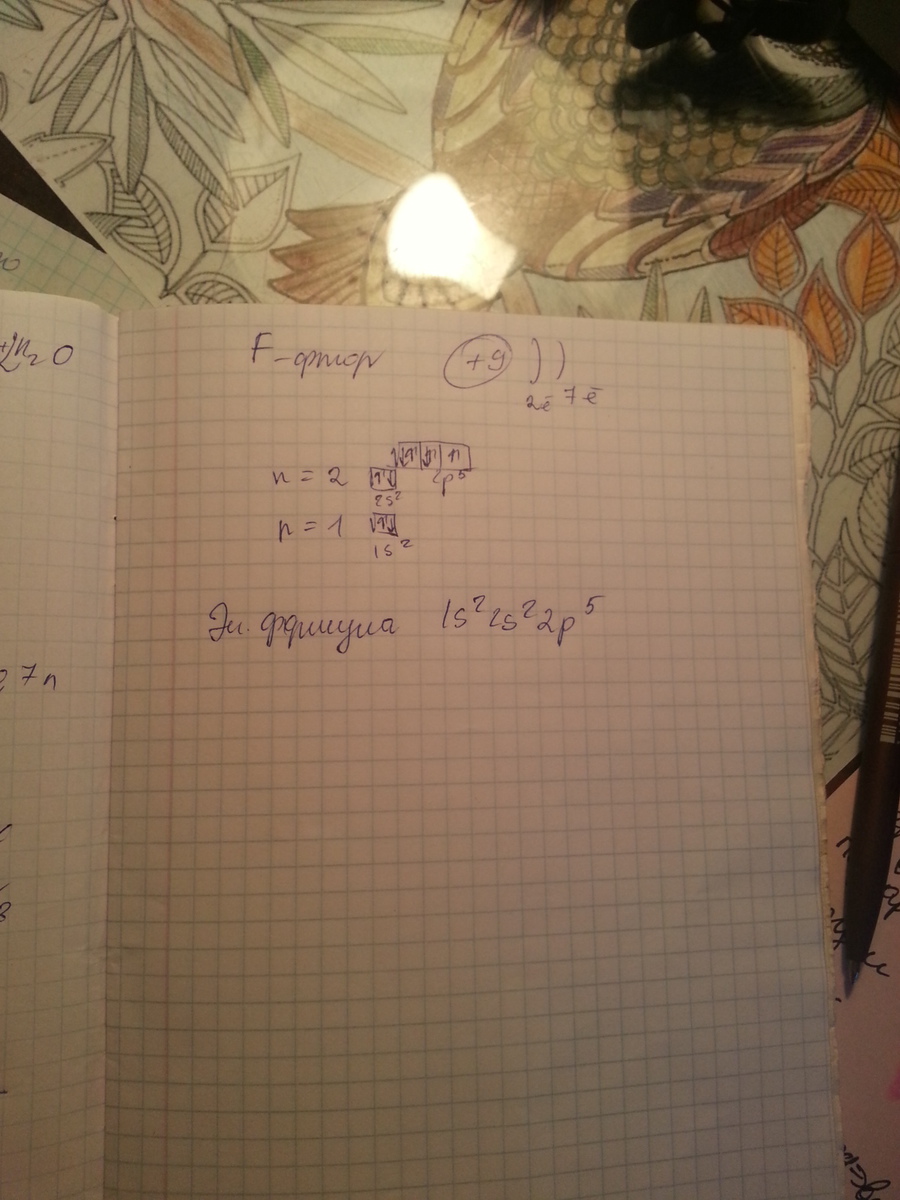 F-фтор +9 ) )
2ē 7ē
n = 2 ↑↓ ↑↓ ↑↓ ↑
2s² 2p⁵
n = 1 ↑↓
1s²
Эл. формула 1s²2s²2p⁵
2n=0
7n